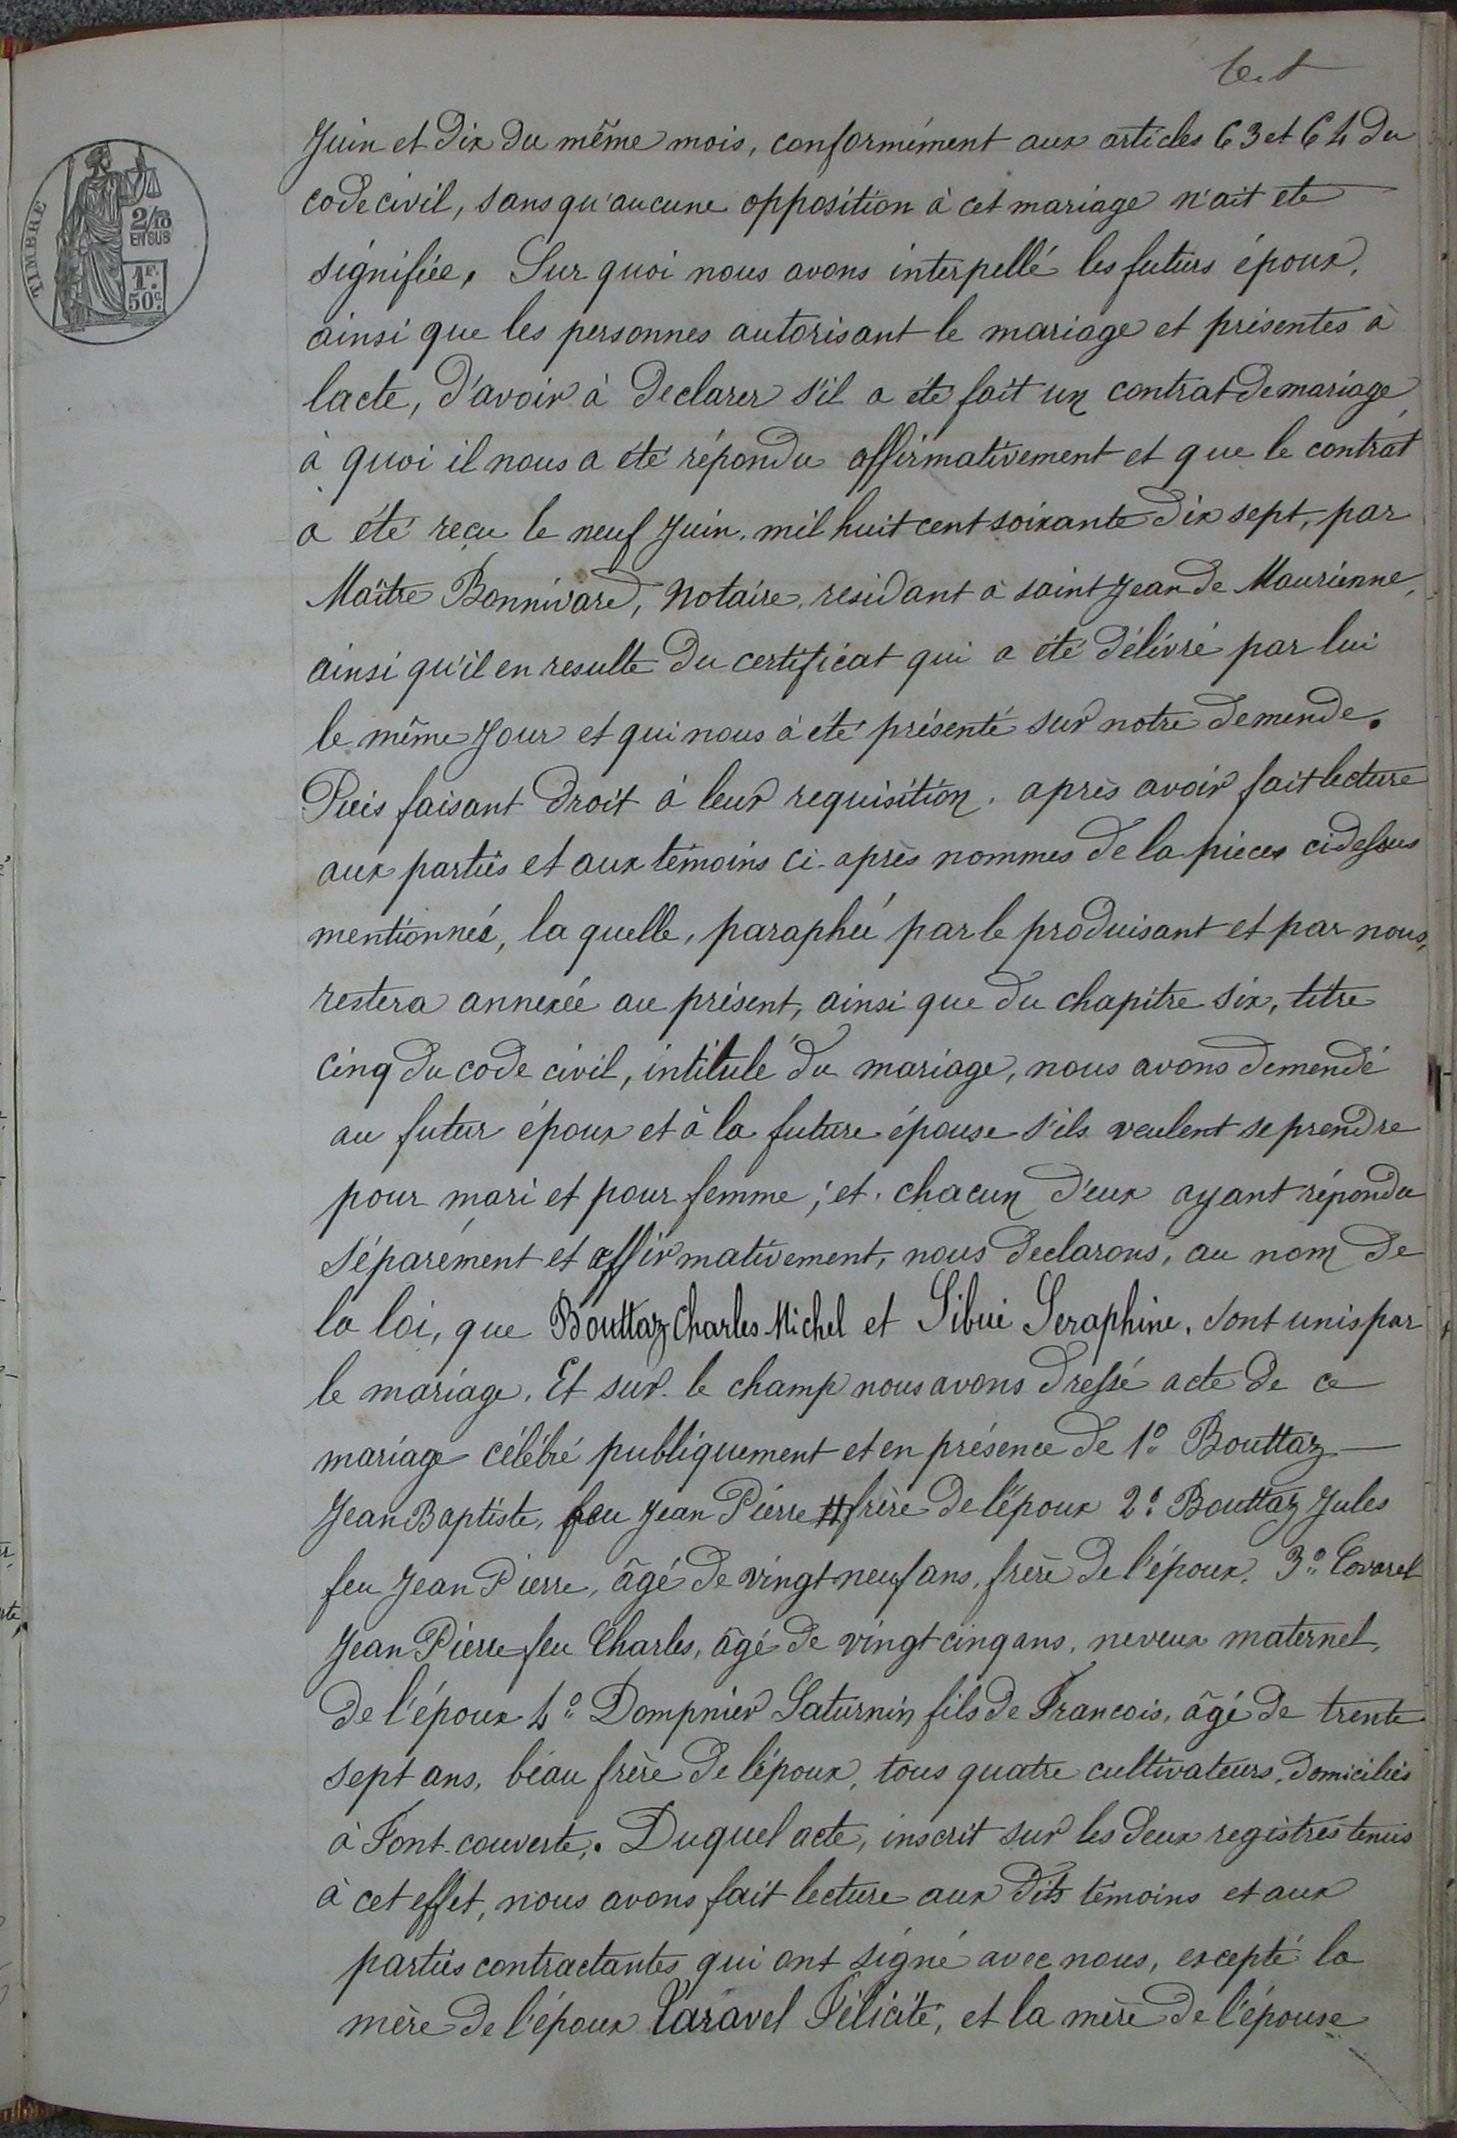 TIMBRE
2/10
EN SUS
1F.
50c.
Juin et dix du même mois, conformément aux articles 63 et 64 du
code civil, sans qu'aucune opposition à cet mariage n'ait ete
signifiée, Sur quoi nous avons interpellé les futurs époux,
ainsi que les personnes autorisant le mariage et présentes à
lacte, d'avoir à declarer s'il a été fait un contrat de mariage,
à quoi il nous a été répondu affirmativement et que le contrat
a été reçu le neuf Juin, mil huit cent soixante dix sept, par
Maître Bonnivard, Notaire, residant à saint Jean de Maurienne,
ainsi qu'il en resulte du certificat qui a été délivré par lui
le même Jour et qui nous à été présenté sur notre demende.
Puis faisant droit à leur requisition, après avoir fait lecture
aux parties et aux témoins ci-après nommes de la pieces ci dessus
mentionnée, la quelle, paraphée par le produisant et par nous,
restera annexée au présent, ainsi que du chapitre six, titre
cinq du code civil, intitulé du mariage, nous avons demendé
au futur époux et à la future épouse s'ils veulent se prendre
pour mari et pour femme; et chacun d'eux ayant répondu
séparément et affirmativement, nous declarons, au nom de
la loi, que Bouttaz Charles Michel et Sibué Seraphine, sont unis par
le mariage. Et sur le champ nous avons dressé acte de ce
mariage célébré publiquement et en présence de 1° Bouttaz
Jean Baptiste, feu Jean Pierre # frère de l'époux 2° Bouttaz Jules
feu Jean Pierre, âgé de vingt neuf ans, frère de l'époux, 3° Covarel
Jean Pierre feu Charles, âgé de vingt cinq ans, neveux maternel,
de l'époux 4° Dompnier Saturnin fils de Francois, âgé de trente
sept ans, béau frère de l'époux, tous quatre cultivateurs, domiciliés
à Font-couverte. Duquel acte, inscrit sur les deux registres tenus
à cet effet, nous avons fait lecture aux dits témoins et aux
parties contractantes qui ont signé avec nous, excepté la
mère de l'époux Taravel Félicité, et la mère de l'épouse